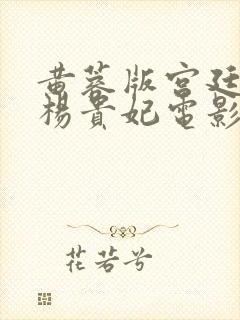 黄蓉版宫廷
杨贵妃电影
花若兮